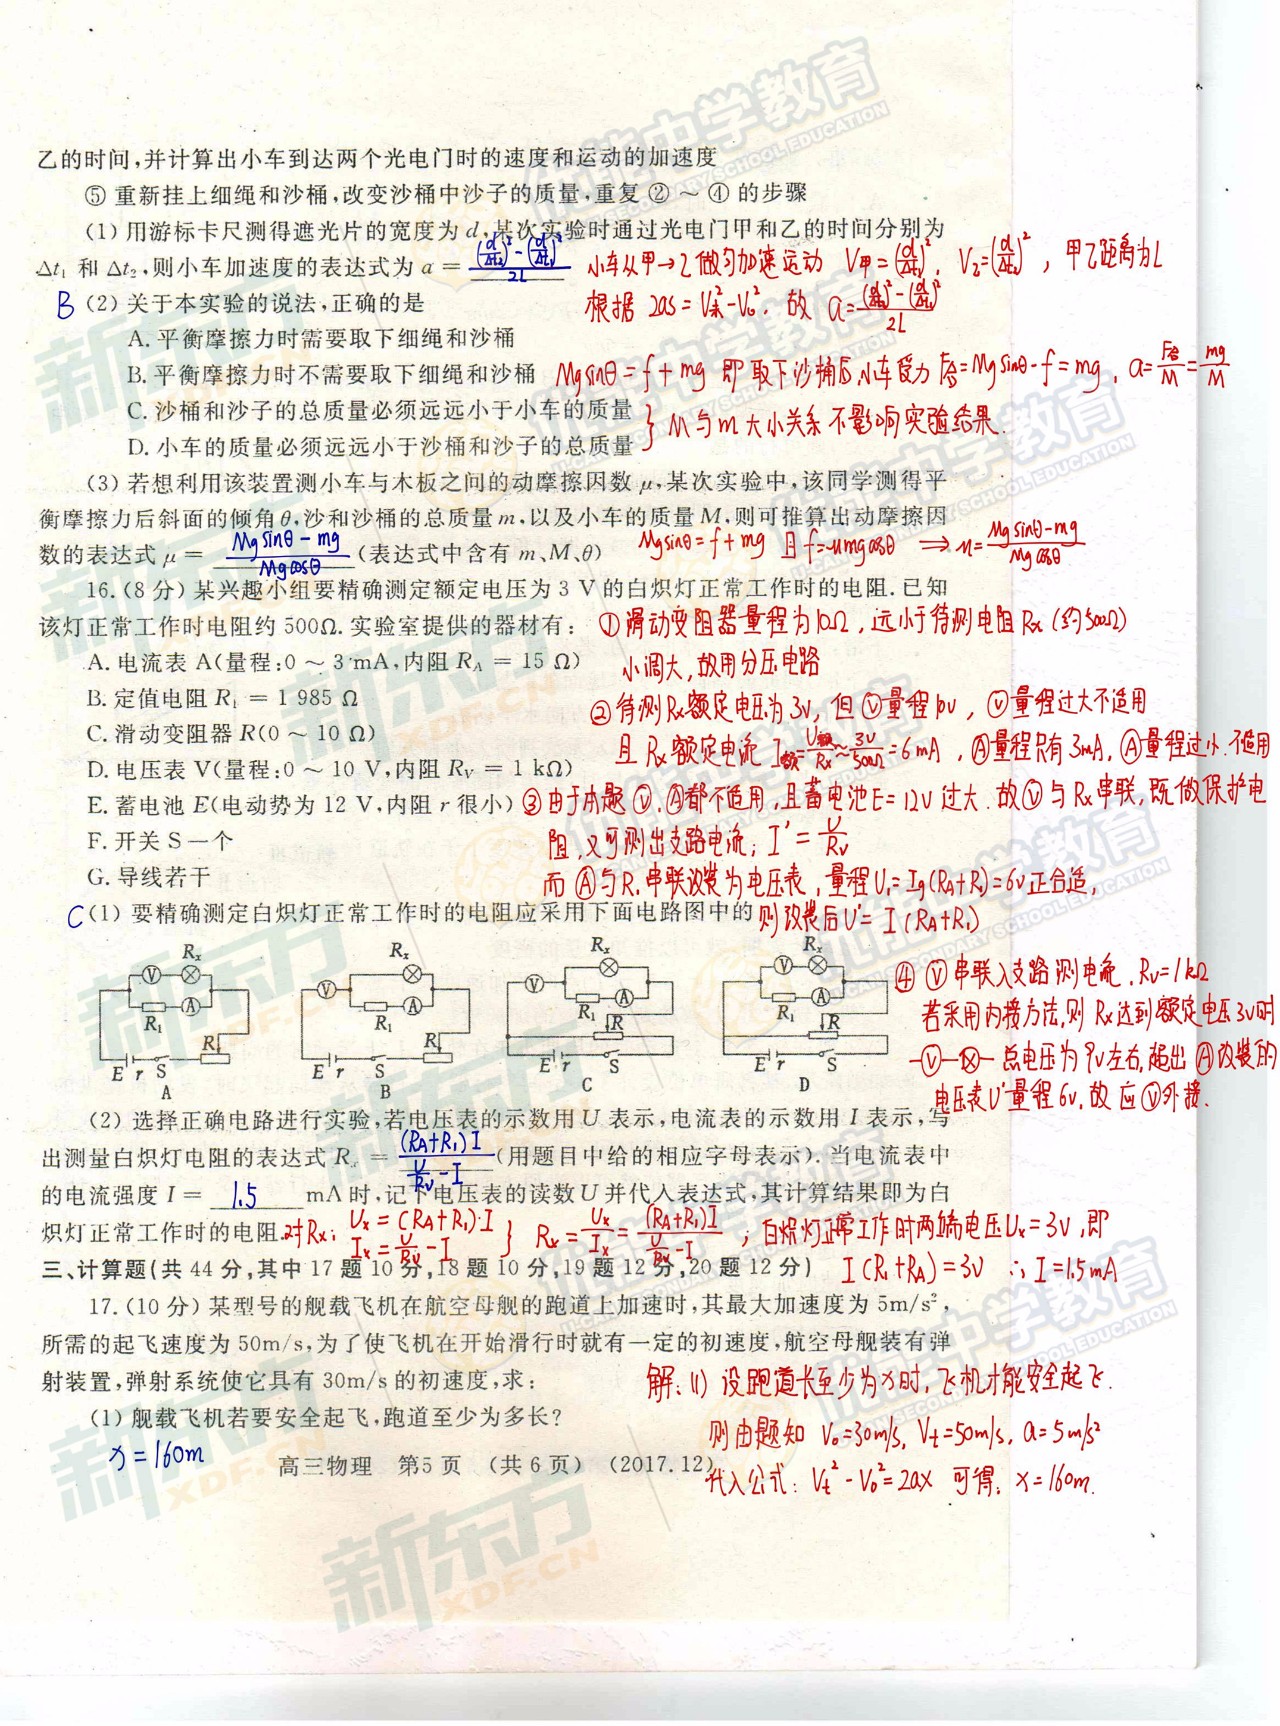 乙的时间,并计算出小车到达两个光电门时的速度和运动的加速度
⑤ 重新挂上细绳和沙桶,改变沙桶中沙子的质量,重复 ② ～ ④ 的步骤
(1) 用游标卡尺测得遮光片的宽度为 d,某次实验时通过光电门甲和乙的时间分别为
Δt₁ 和 Δt₂,则小车加速度的表达式为 a = ((d/Δt₂)²-(d/Δt₁)²)/2L 小车从甲→乙做匀加速运动 V甲=(d/Δt₁)², V₂=(d/Δt₂)², 甲乙距离为L
根据 2as=V末²-V₀². 故 a=((d/Δt₂)²-(d/Δt₁)²)/2L
B (2) 关于本实验的说法,正确的是
A. 平衡摩擦力时需要取下细绳和沙桶
B. 平衡摩擦力时不需要取下细绳和沙桶 Mgsinθ=f+mg 即取下沙桶后,小车受力 F合=Mgsinθ-f=mg, a=F合/M=mg/M
C. 沙桶和沙子的总质量必须远远小于小车的质量
D. 小车的质量必须远远小于沙桶和沙子的总质量 } M与m大小关系不影响实验结果.
(3) 若想利用该装置测小车与木板之间的动摩擦因数 μ,某次实验中,该同学测得平
衡摩擦力后斜面的倾角 θ,沙和沙桶的总质量 m,以及小车的质量 M,则可推算出动摩擦因
数的表达式 μ = (Mgsinθ-mg)/Mgcosθ (表达式中含有 m、M、θ) Mgsinθ=f+mg 且 f=μmgcosθ ⇒ μ=(Mgsinθ-mg)/Mgcosθ
16. (8 分) 某兴趣小组要精确测定额定电压为 3 V 的白炽灯正常工作时的电阻. 已知
该灯正常工作时电阻约 500Ω. 实验室提供的器材有: ①滑动变阻器量程为10Ω, 远小于待测电阻Rx(约500Ω)
小调大,故用分压电路
A. 电流表 A(量程:0 ～ 3 mA,内阻 R_A = 15 Ω)
B. 定值电阻 R₁ = 1 985 Ω
②待测Rx额定电压为3V, 但Ⓥ量程10V, Ⓥ量程过大不适用
C. 滑动变阻器 R(0 ～ 10 Ω)
且Rx额定电流 I额=U额/Rx≈3V/500Ω=6mA, Ⓐ量程只有3mA, Ⓐ量程过小.不适用
D. 电压表 V(量程:0 ～ 10 V,内阻 R_V = 1 kΩ)
E. 蓄电池 E(电动势为 12 V,内阻 r 很小) ③由于本题Ⓥ.Ⓐ都不适用,且蓄电池E=12V过大.故Ⓥ与Rx串联,既做保护电
F. 开关 S 一个
阻,又可测出支路电流; I'=U/Rv
G. 导线若干
而Ⓐ与R₁串联改装为电压表, 量程U₁=Ig(RA+R₁)=6V正合适,
C (1) 要精确测定白炽灯正常工作时的电阻应采用下面电路图中的 则改装后U'=I(RA+R₁)
Rx V R₁ A R E r S A
V Rx R₁ A R E r S B
V Rx R₁ A R E r S C
V Rx R₁ A R E r S D
④ Ⓥ串联入支路测电流. Rv=1kΩ
若采用内接方法,则Rx达到额定电压3V时
—Ⓥ—⊗— 总电压为9V左右,超出Ⓐ改装的
电压表U'量程6V.故应Ⓥ外接.
(2) 选择正确电路进行实验,若电压表的示数用 U 表示,电流表的示数用 I 表示,写
出测量白炽灯电阻的表达式 Rx = (RA+R₁)I/(U/Rv-I) (用题目中给的相应字母表示). 当电流表中
的电流强度 I = 1.5 mA 时,记下电压表的读数 U 并代入表达式,其计算结果即为白
炽灯正常工作时的电阻. 对Rx: Ux=(RA+R₁)·I Ix=U/Rv-I } Rx=Ux/Ix=(RA+R₁)I/(U/Rv-I) ; 白炽灯正常工作时两端电压Ux=3V,即
三、计算题(共 44 分,其中 17 题 10 分,18 题 10 分,19 题 12 分,20 题 12 分) I(R₁+RA)=3V ∴I=1.5mA
17. (10 分) 某型号的舰载飞机在航空母舰的跑道上加速时,其最大加速度为 5m/s²,
所需的起飞速度为 50m/s,为了使飞机在开始滑行时就有一定的初速度,航空母舰装有弹
射装置,弹射系统使它具有 30m/s 的初速度,求:
(1) 舰载飞机若要安全起飞,跑道至少为多长?
x=160m
解: (1) 设跑道长至少为x时,飞机才能安全起飞.
则由题知 V₀=30m/s, Vt=50m/s, a=5m/s²
代入公式: Vt²-V₀²=2ax 可得: x=160m.
高三物理 第5页 (共 6 页) (2017.12)
新东方
XDF.CN
优能中学教育
U-CAN SECONDARY SCHOOL EDUCATION